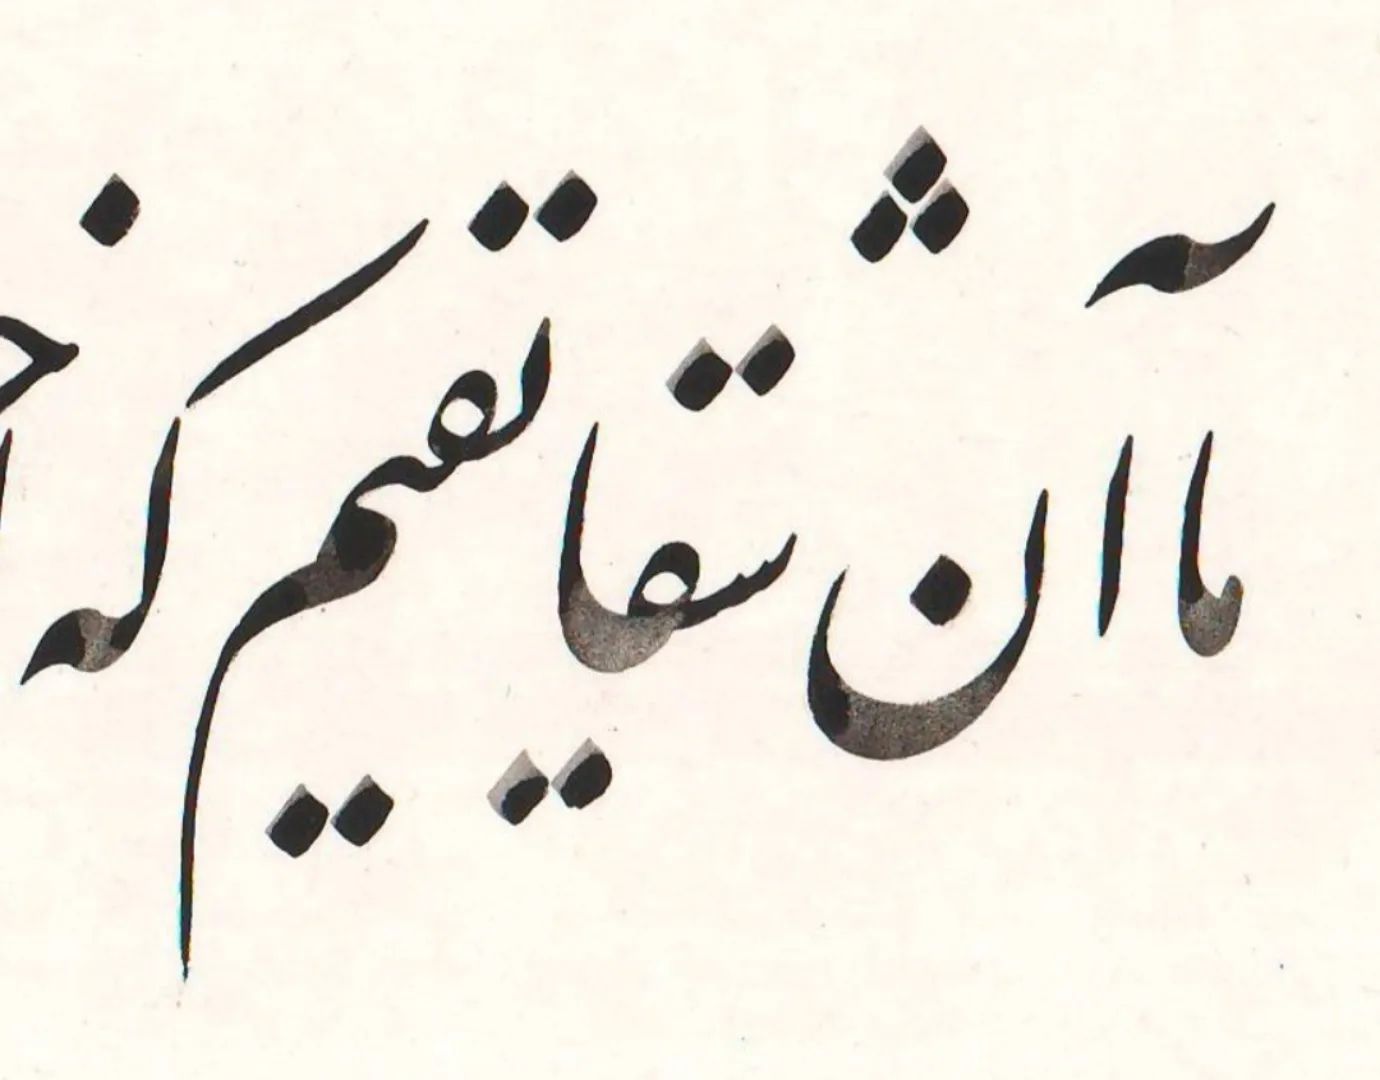 ما آن شقایقیم که